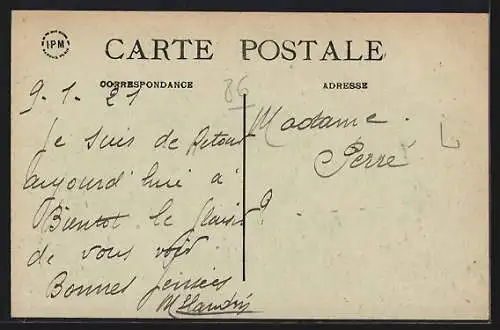 IPM
CARTE POSTALE
CORRESPONDANCE
ADRESSE
86
9-1-21
Je suis de Retour
aujourd'hui à
Bientot le plaisir
de vous voir
Bonnes pensées
Madame
Perré